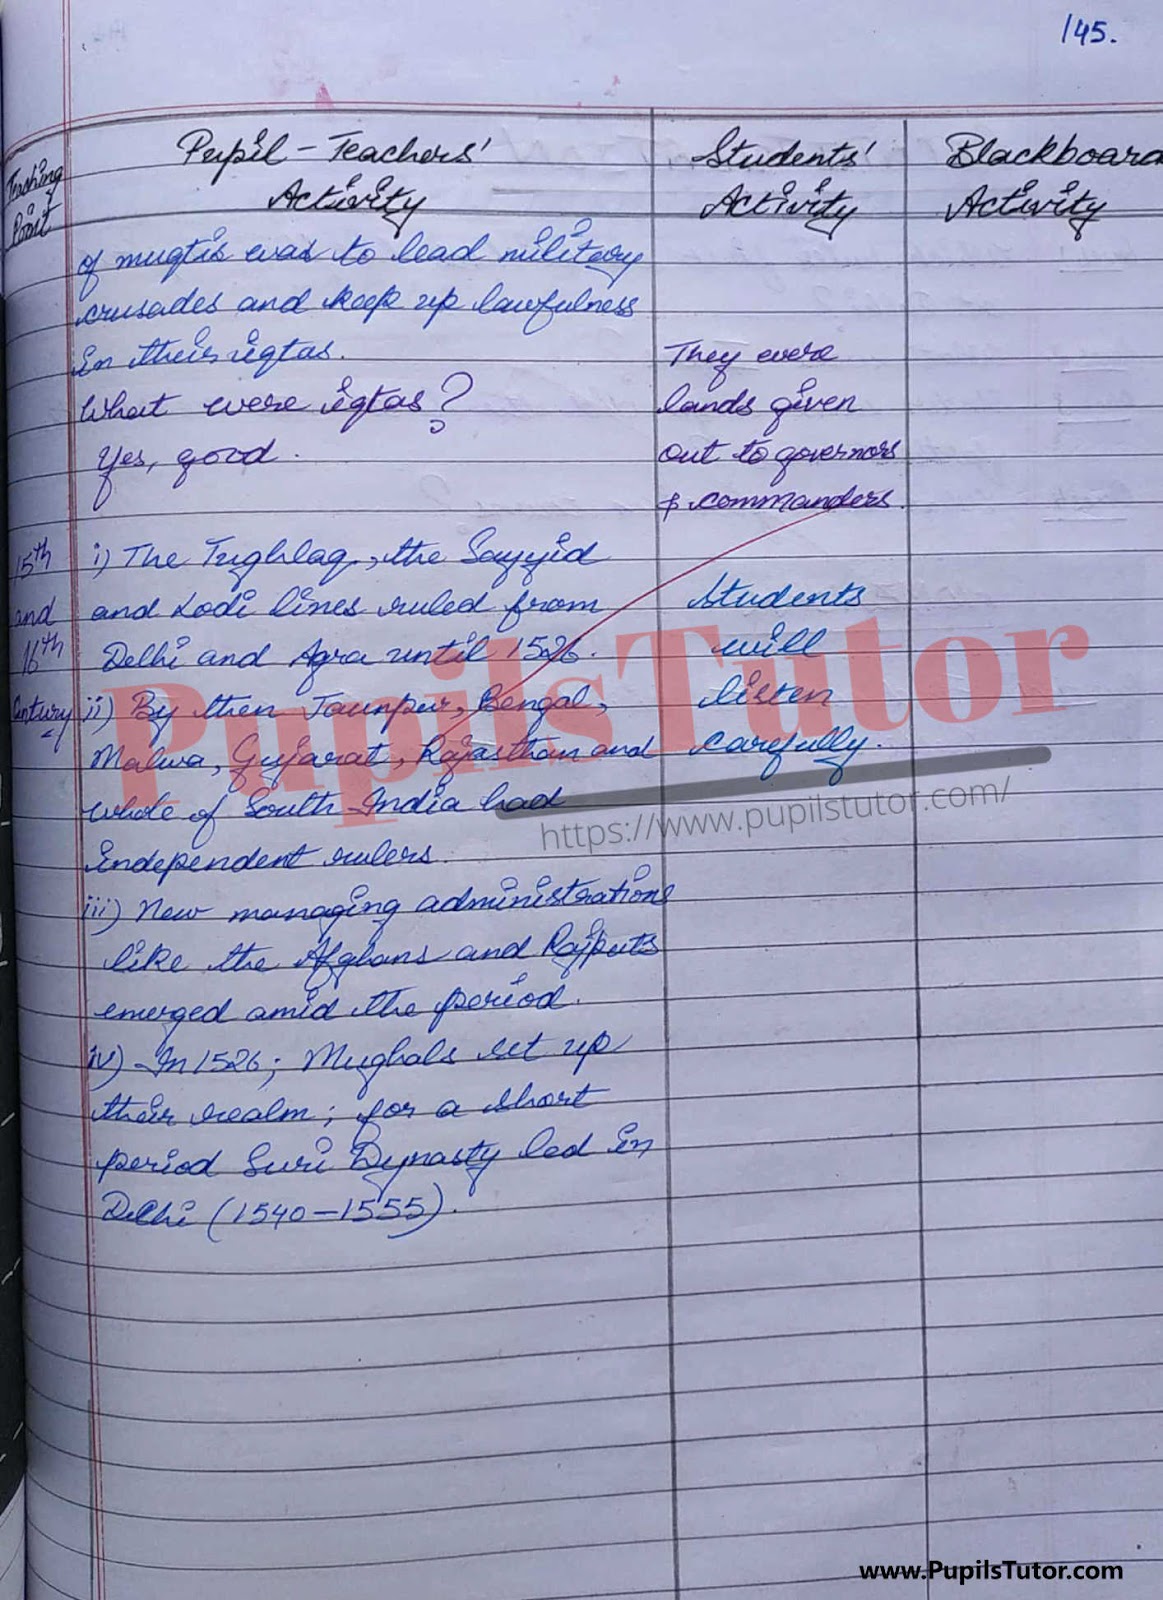 145.
Teaching Point
Pupil-Teachers' Activity
Students' Activity
Blackboard Activity
of muqtis was to lead military
crusades and keep up lawfulness
in their iqtas.
What were iqtas?
Yes, good.
They were
lands given
out to governors
& commanders.
15th
and
16th
Century
i) The Tughlaq, the Sayyid
and Lodi lines ruled from
Delhi and Agra until 1526.
ii) By then Jaunpur, Bengal,
Malwa, Gujarat, Rajasthan and
whole of South India had
independent rulers.
iii) New managing administrations
like the Afghans and Rajputs
emerged amid the period.
iv) In 1526; Mughals set up
their realm; for a short
period Suri Dynasty led in
Delhi (1540-1555).
Students
will
listen
carefully.
PupilsTutor
https://www.pupilstutor.com/
www.PupilsTutor.com